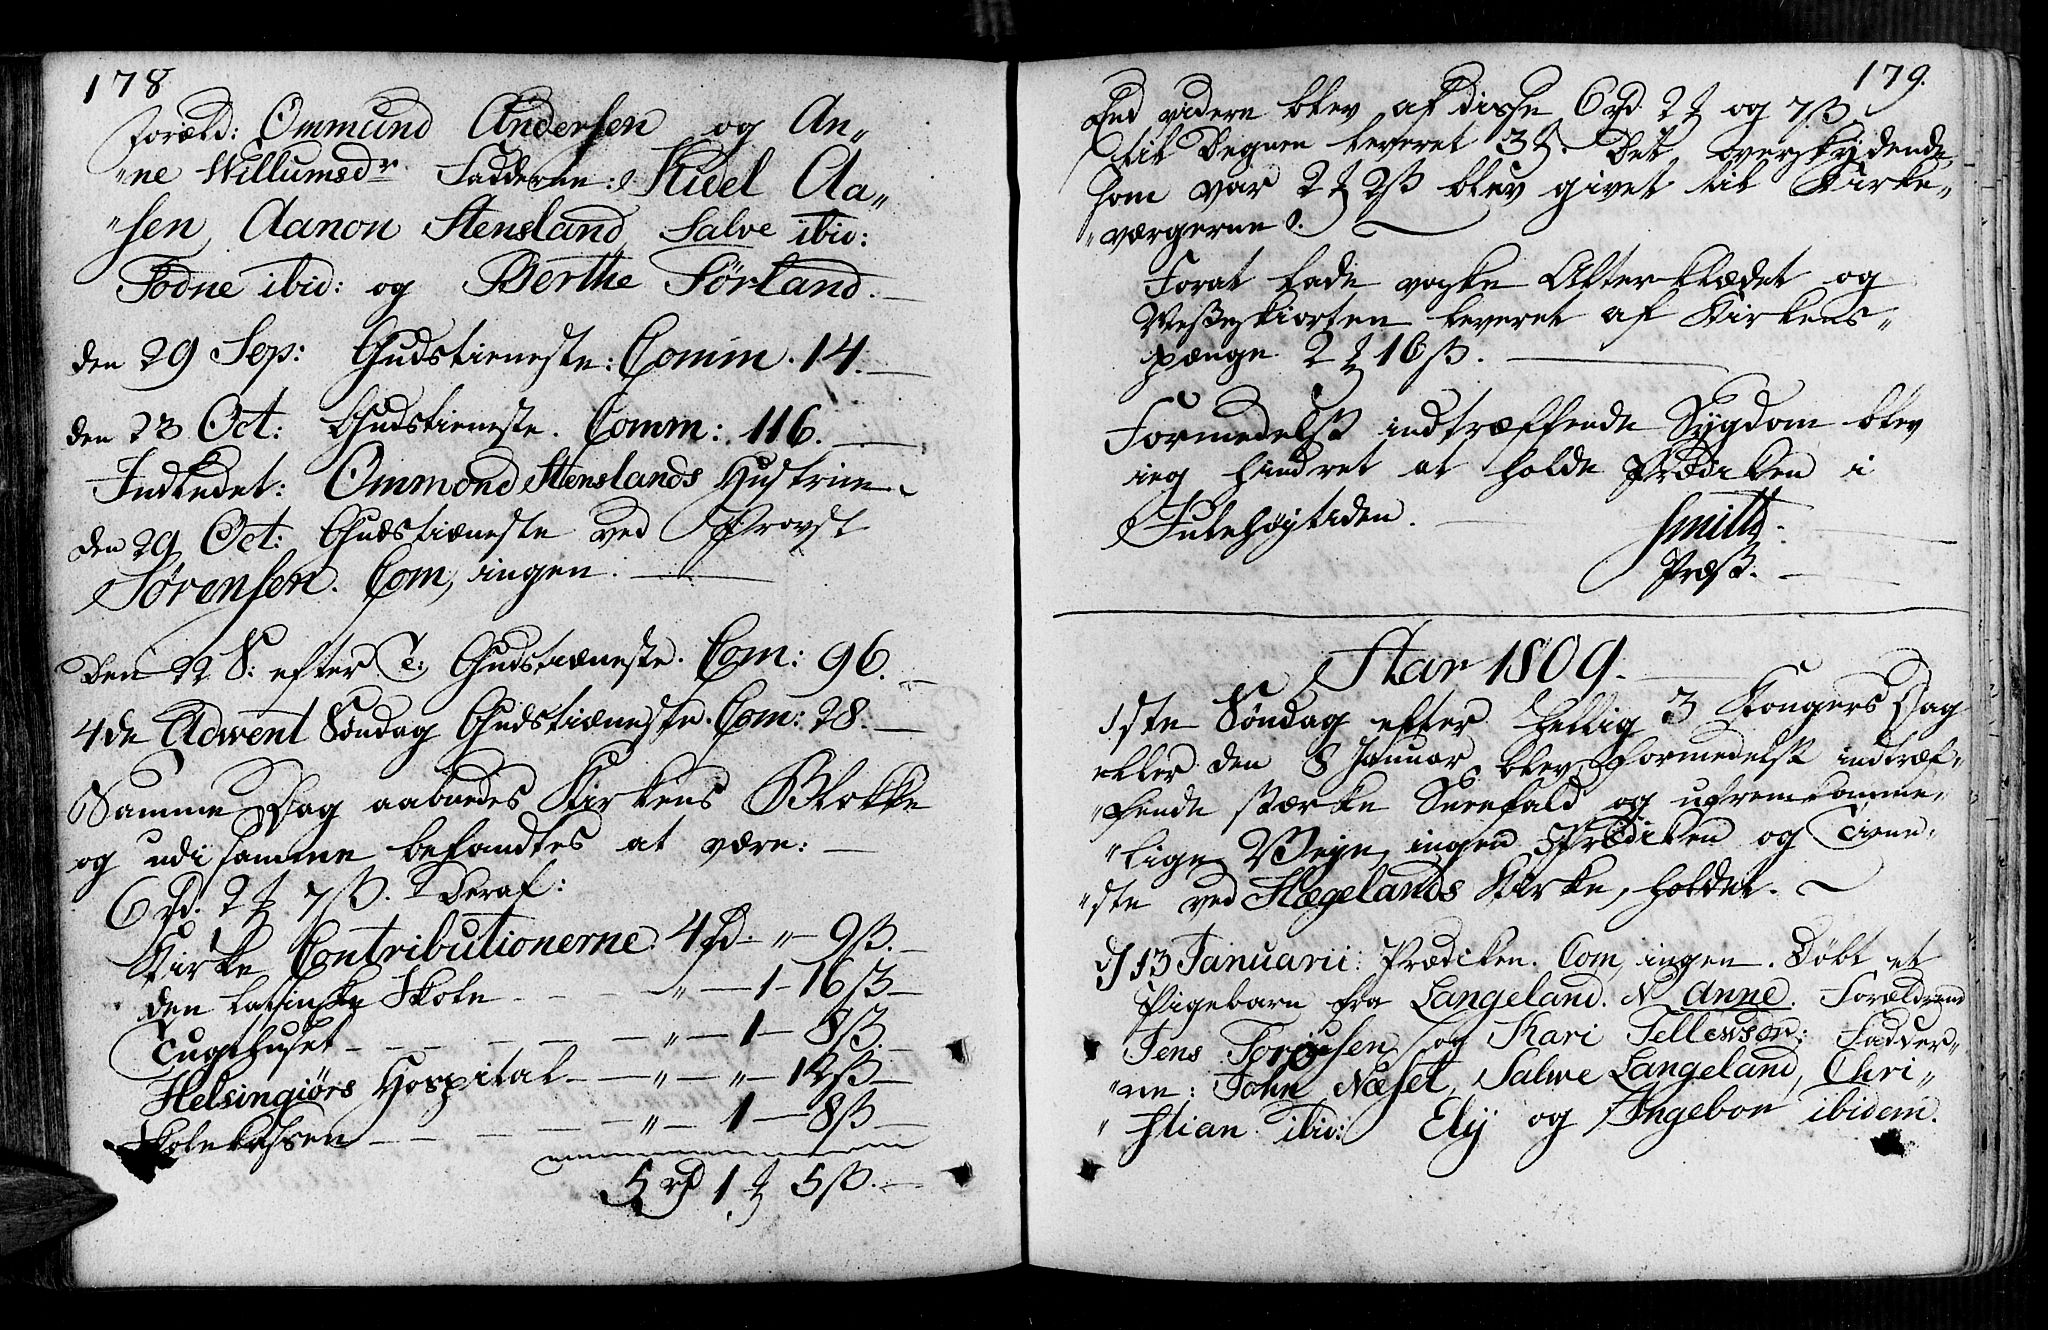 178
Foræld: Ommund Andersen og An„
„ne Willumsdr. Fadderne: Kidel Aa„
„sen, Aanon Stensland, Salve ibid:
Todne ibid: og Berthe Sörland.
den 29 Sep: Gudstieneste: Comm. 14.
den 23 Oct: Gudstieneste. Comm: 116.
Indledet: Ommond Stenslands Hustrue
den 29 Oct: Gudstiæneste ved Provst
Sørensen. Com, ingen.
Den 22 S: efter T: Gudstiæneste. Com: 96.
4de Advent Söndag Gudstiæneste. Com: 28.
Samme Dag aabnedes Kirkens Blokke
og udi samme befandtes at være:
6 rd. 2 ₰ 7 ß. Deraf:
Kirke Contributionerne 4 rd - „ - 9 ß.
den latinske Skole - - - „ - 1 - 16 ß
Tugthuset - - - - - „ - 1 - 8 ß.
Helsingiørs Hospital - - „ - „ - 12 ß
Skolekassen - - - - „ - 1 - 8 ß
5 rd 1 ₰ 5 ß.
179.
End videre blev af disse 6 rd. 2 ₰ og 7 ß.
til Degnen leveret 3 ₰. Det overskydende
som var 2 ₰ 2 ß blev givet til Kirke„
„værgerne.
Forat lade vaske Alterklædet og
Messeskiorten leveret af Kirkens„
penge 2 ₰ 16 ß.
Formedelst indtræffende Sygdom blev
ieg hindret at holde Prædiken i
Julehøytiden.
Smith
Præst.
Aar 1809.
1ste Söndag efter hellig 3 Kongers Dag
eller den 8 Januar blev formedelst indtræf„
„fende stærke Sneefald og ufremkomme„
„lige Veye, ingen Prædiken og Tiene„
„ste ved Hægelands Kirke, holdet.
d 13 Januarii: Prædiken. Com, ingen. Döbt et
Pigebarn fra Langeland. N Anne. Forældrene
Jens Torjusen og Kari Tellewsdr: Fadder„
„ne: John Næset, Salwe Langeland, Chri„
„stian ibid: Ely og Angebor ibidem.